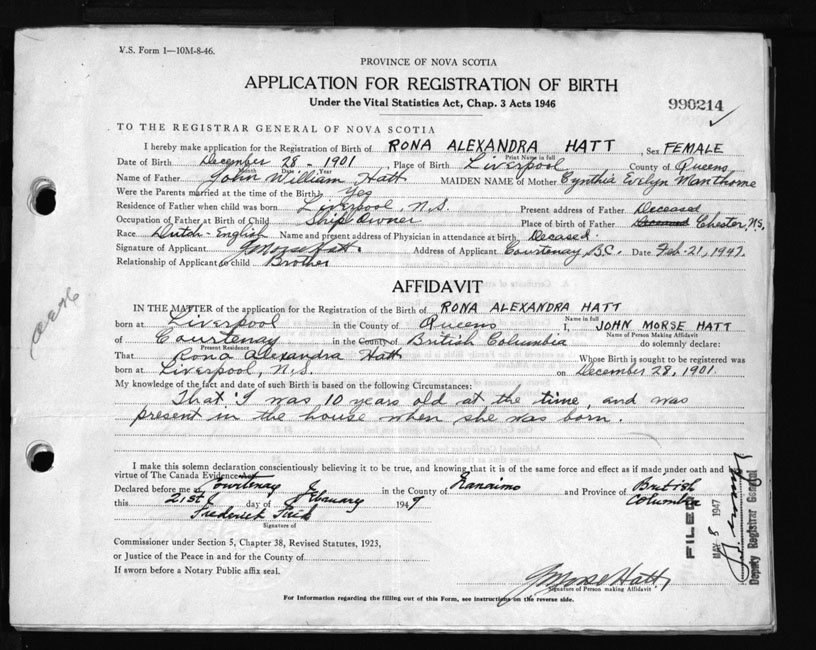 V.S. Form 1—10M-8-46.
PROVINCE OF NOVA SCOTIA
APPLICATION FOR REGISTRATION OF BIRTH
Under the Vital Statistics Act, Chap. 3 Acts 1946
990214
TO THE REGISTRAR GENERAL OF NOVA SCOTIA
I hereby make application for the Registration of Birth of RONA ALEXANDRA HATT, Sex FEMALE
Print Name in full
Date of Birth December 28 - 1901, Place of Birth Liverpool County of Queens
Month Date Year
Name of Father John William Hatt MAIDEN NAME of Mother Cynthia Evelyn Manthorne
Were the Parents married at the time of the Birth Yes
Residence of Father when child was born Liverpool, N.S. Present address of Father Deceased
Occupation of Father at Birth of Child Ship Owner Place of birth of Father Chester, N.S.
Race Dutch-English Name and present address of Physician in attendance at birth, Decased
Signature of Applicant J Morse Hatt. Address of Applicant Courtenay B.C. Date Feb-21, 1947.
Relationship of Applicant to child Brother
AFFIDAVIT
IN THE MATTER of the application for the Registration of the Birth of RONA ALEXANDRA HATT
Name in full
born at Liverpool in the County of Queens I, JOHN MORSE HATT
Name of Person Making Affidavit
of Courtenay in the County of British Columbia do solemnly declare:
Present Residence
That Rona Alexandra Hatt Whose Birth is sought to be registered was
born at Liverpool, N.S. on December 28, 1901.
My knowledge of the fact and date of such Birth is based on the following Circumstances:
That I was 10 years old at the time, and was
present in the house when she was born.
I make this solemn declaration conscientiously believing it to be true, and knowing that it is of the same force and effect as if made under oath and by
virtue of The Canada Evidence Act
Declared before me at Courtenay in the County of Nanaimo and Province of British Columbia
this 21st day of February 1947
Frederick
Signature of
Commissioner under Section 5, Chapter 38, Revised Statutes, 1923,
or Justice of the Peace in and for the County of
If sworn before a Notary Public affix seal.
J Morse Hatt
Signature of Person making Affidavit
For Information regarding the filling out of this Form, see instructions on the reverse side.
FILED
MAY 8 1947
Deputy Registrar General